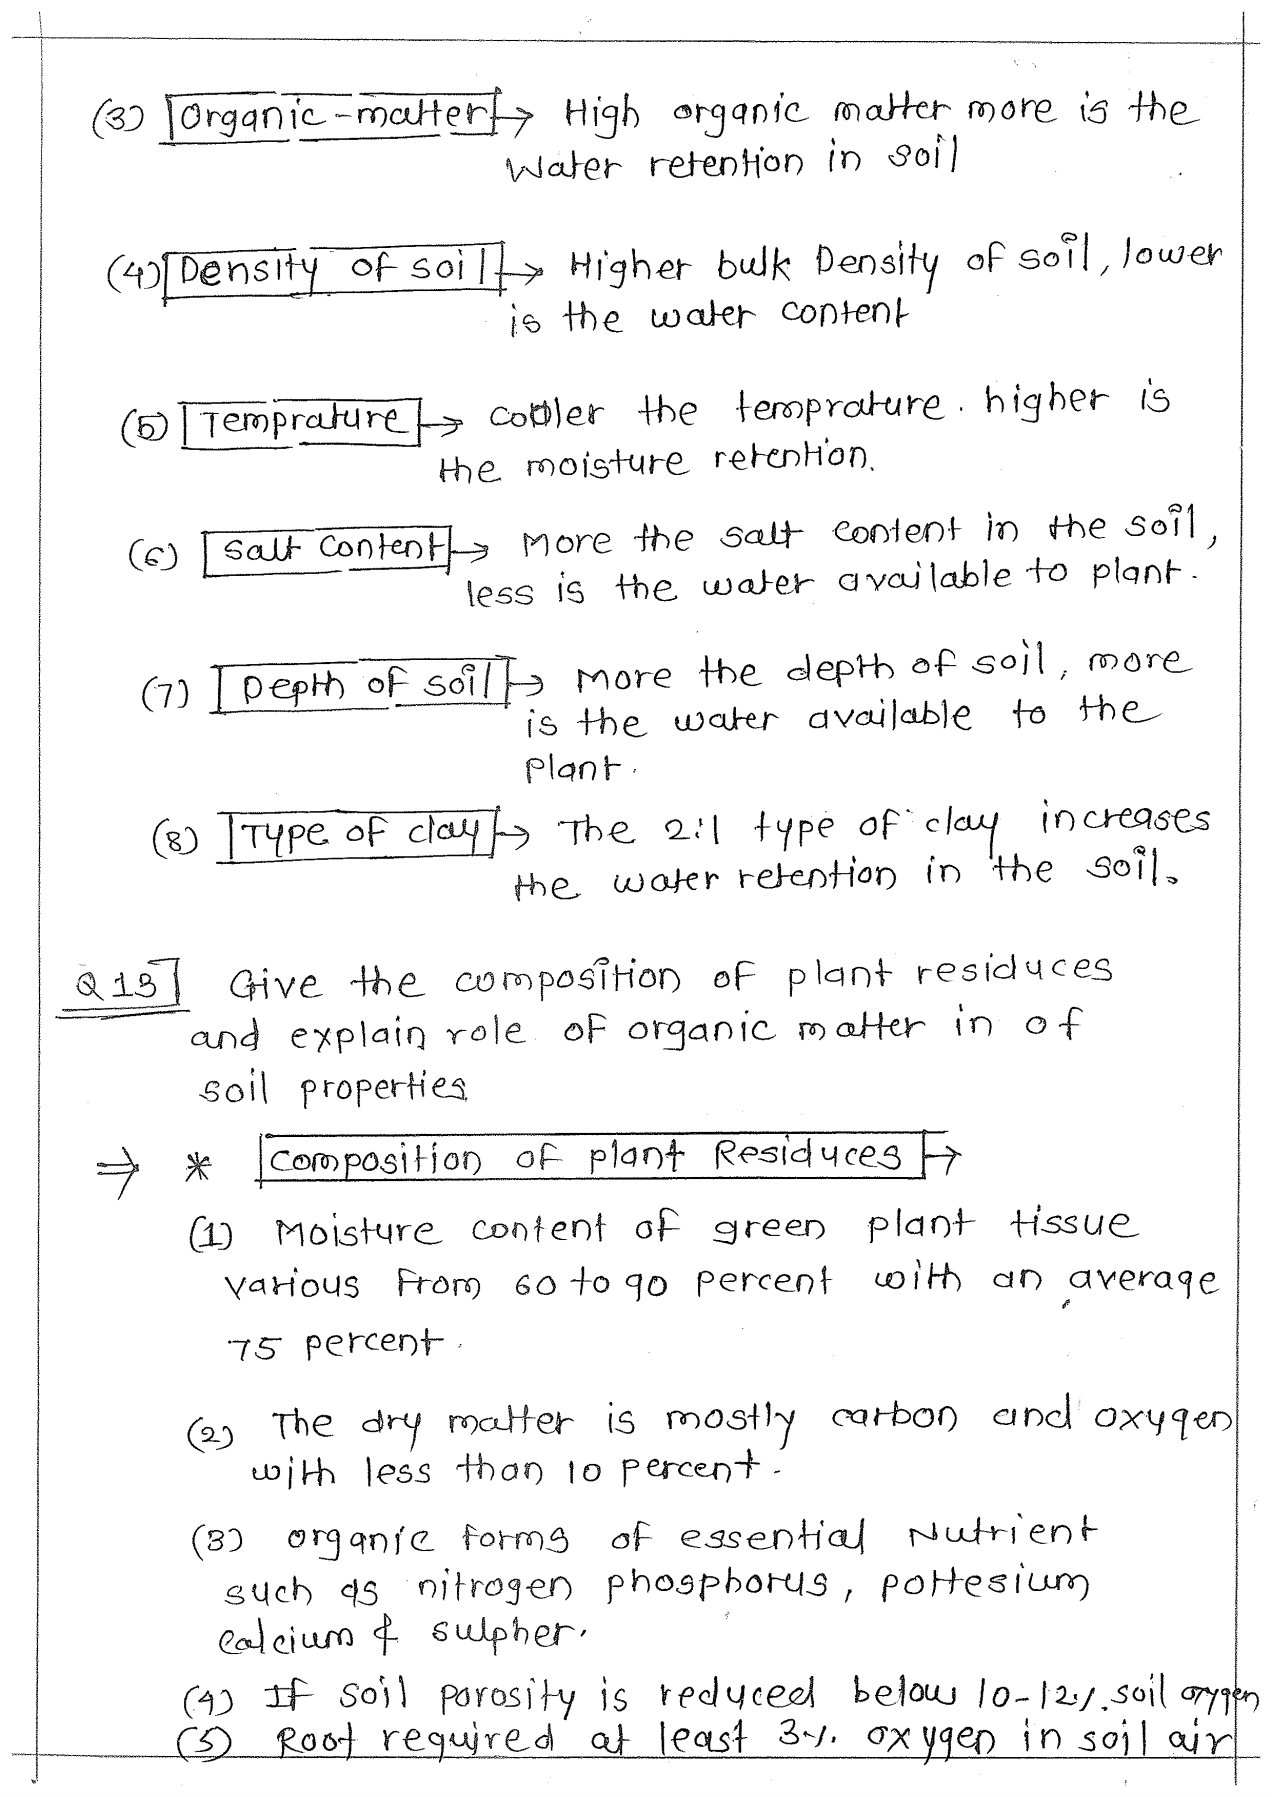 (3) Organic-matter → High organic matter more is the
Water retention in soil
(4) Density of soil → Higher bulk Density of soil, lower
is the water content
(5) Temprature → cooler the temprature. higher is
the moisture retention.
(6) Salt Content → More the salt content in the soil,
less is the water available to plant.
(7) Depth of soil → More the depth of soil, more
is the water available to the
plant.
(8) Type of clay → The 2:1 type of clay increases
the water retention in the soil.
Q 13] Give the composition of plant residuces
and explain role of organic matter in of
soil properties
⇒ * Composition of plant Residuces →
(1) Moisture content of green plant tissue
various from 60 to 90 percent with an average
75 percent.
(2) The dry matter is mostly carbon and oxygen
with less than 10 percent.
(3) organic forms of essential Nutrient
such as nitrogen phosphorus, pottesium
calcium & sulpher.
(4) If soil porosity is reduced below 10-12%. soil oxygen
(5) Root required at least 3%. oxygen in soil air